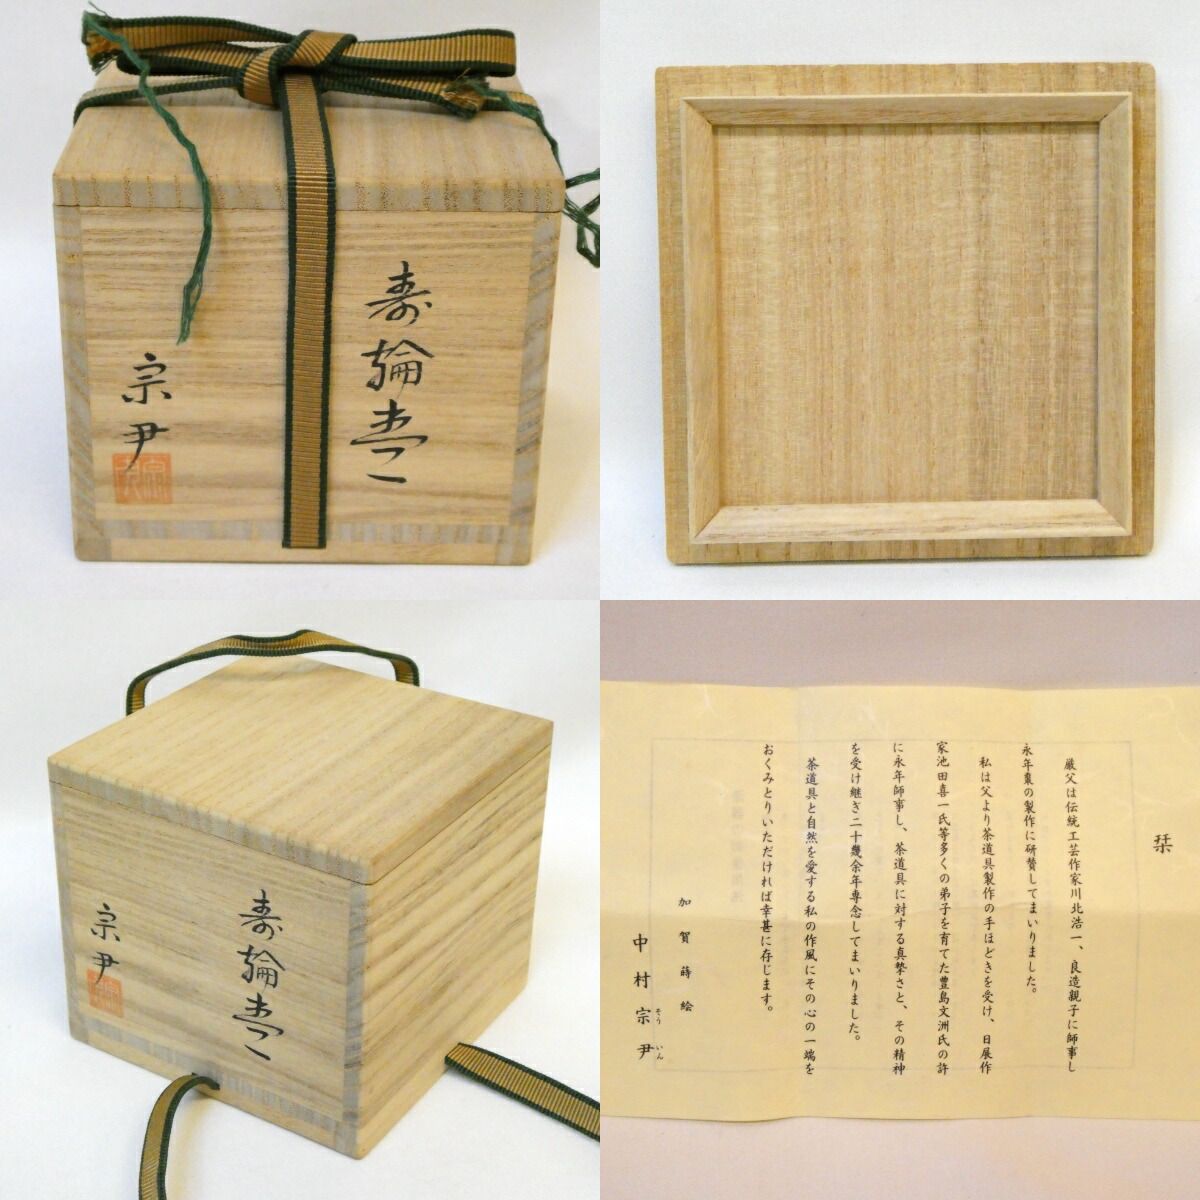 寿輪棗
宗尹
寿輪棗
宗尹
栞
厳父は伝統工芸作家川北浩一、良造親子に師事し
永年棗の製作に研賛してまいりました。
私は父より茶道具製作の手ほどきを受け、日展作
家池田喜一氏等多くの弟子を育てた豊島文洲氏の許
に永年師事し、茶道具に対する真摯さと、その精神
を受け継ぎ二十幾余年専念してまいりました。
茶道具と自然を愛する私の作風にその心の一端を
おくみとりいただければ幸甚に存じます。
加賀蒔絵
中村宗尹
そういん